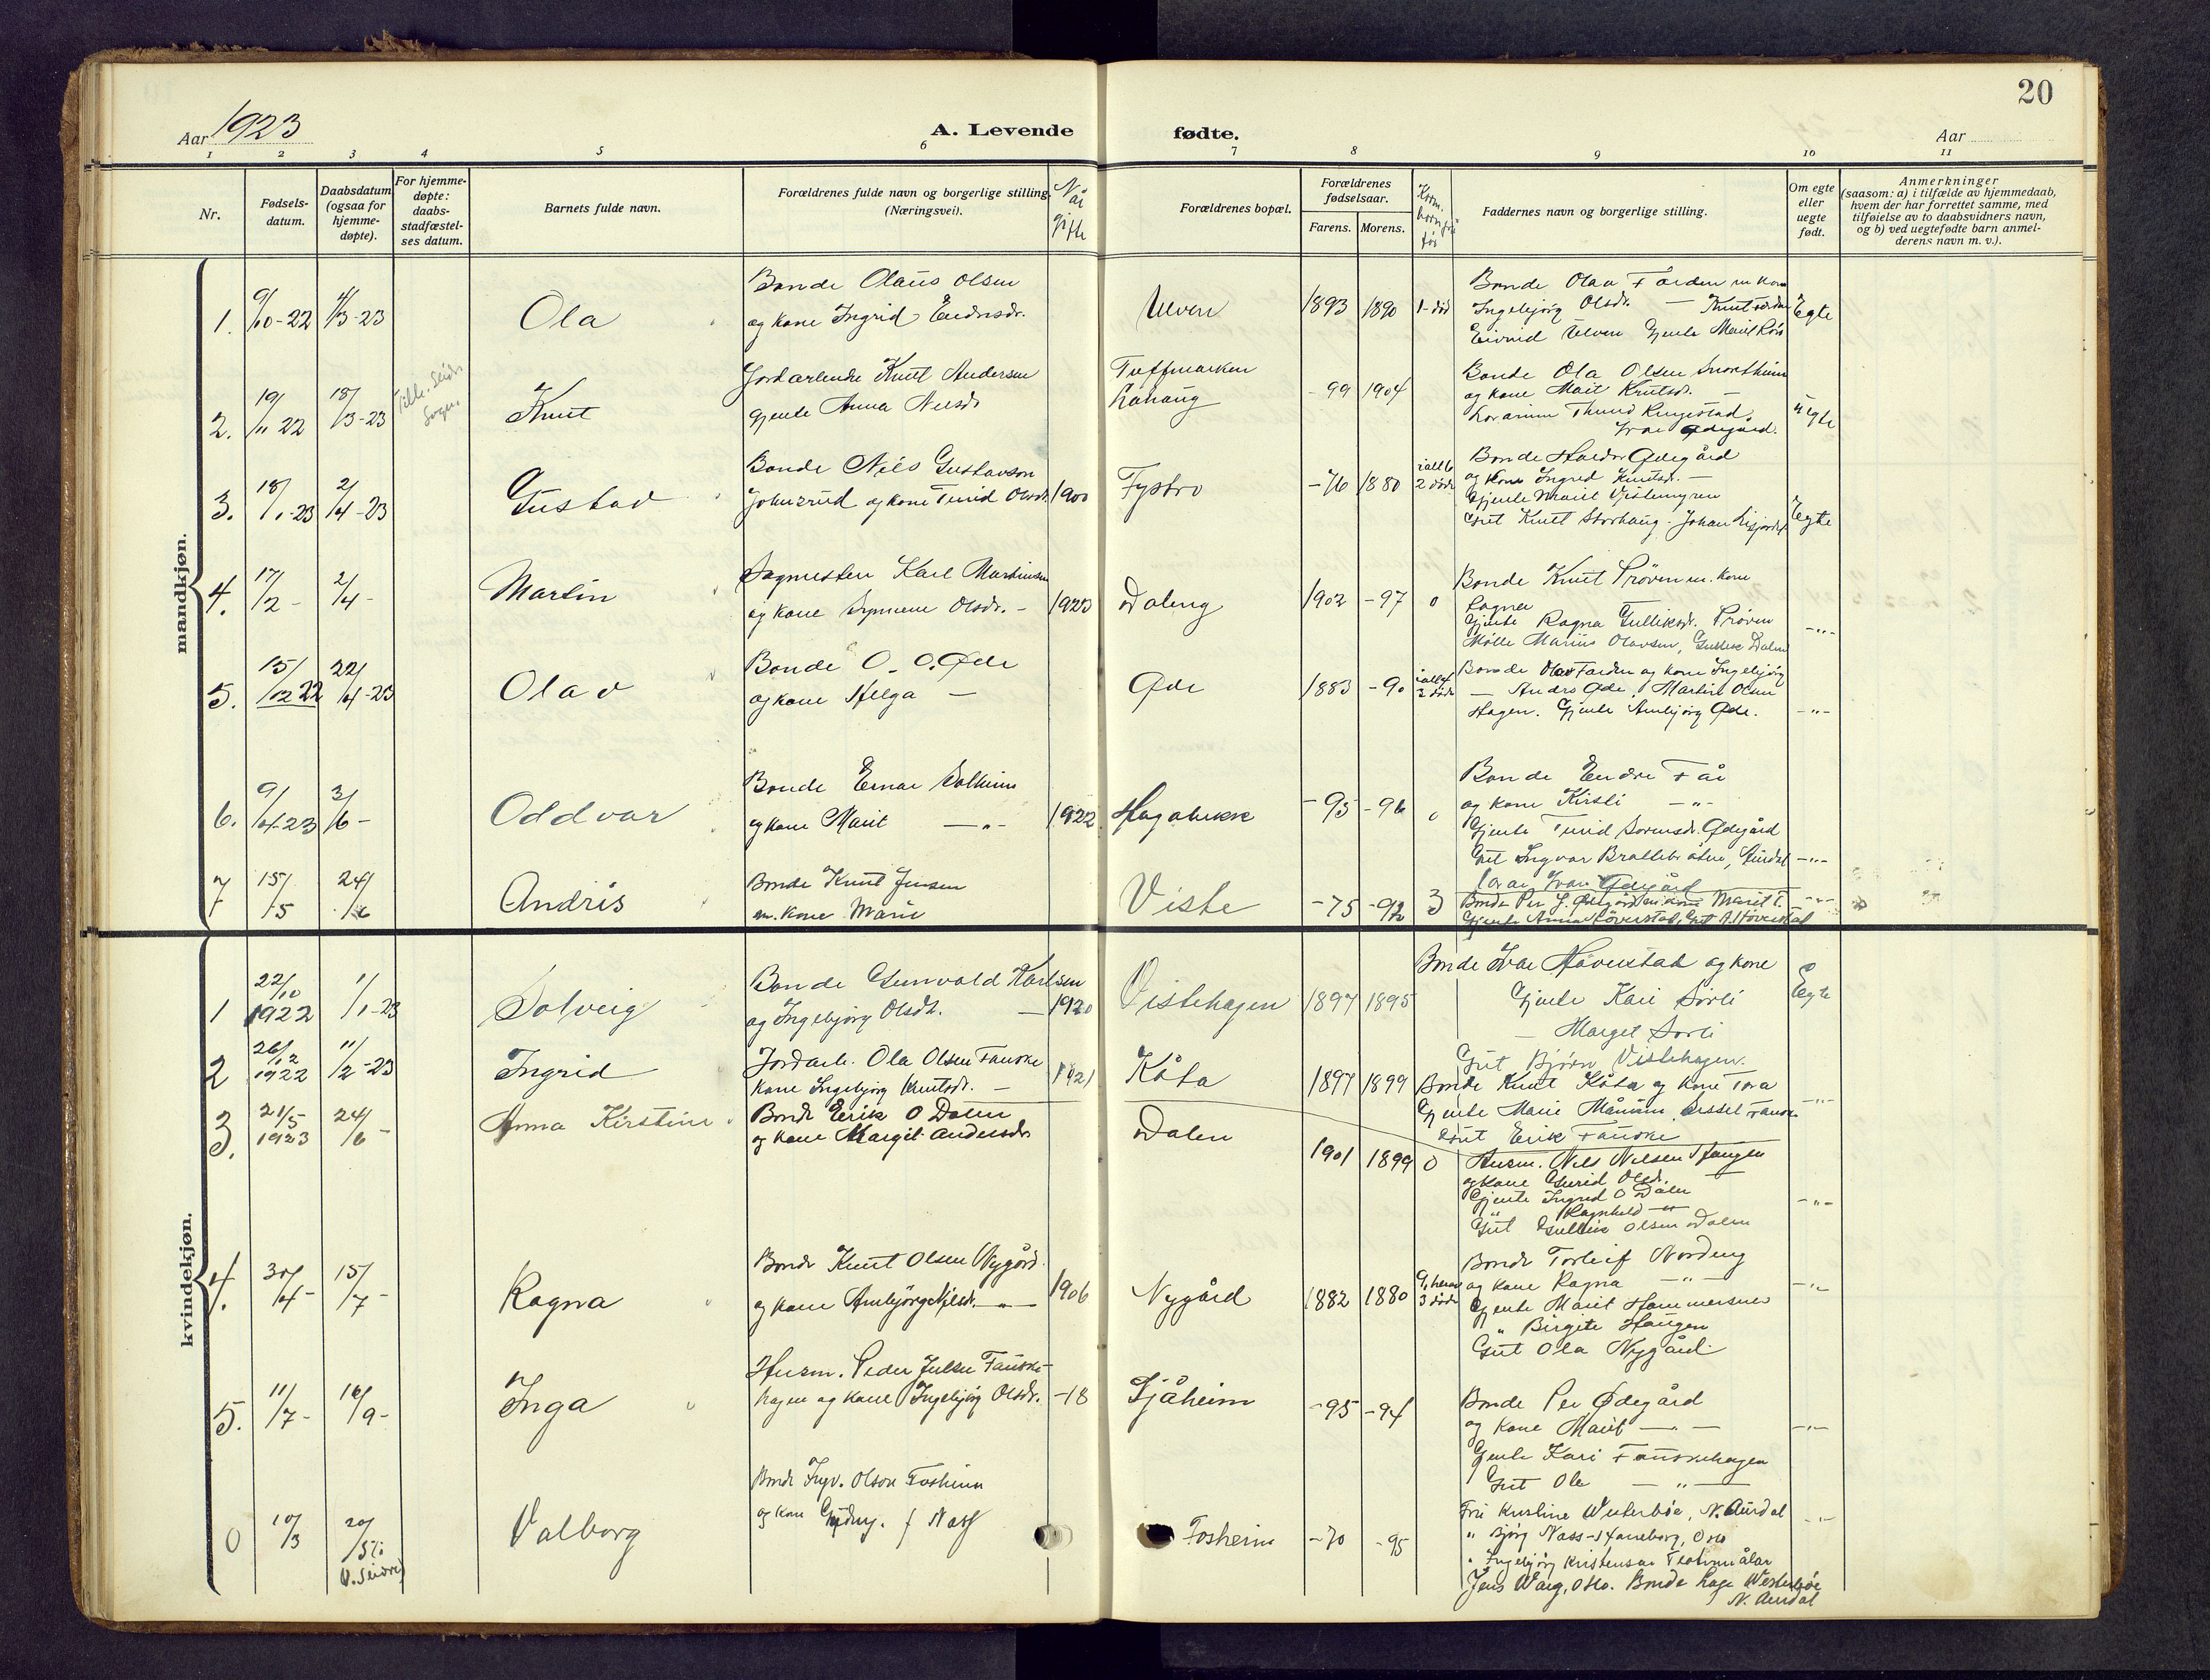 20
Aar 1923
A. Levende
fødte.
Aar
1 2 3 4 5 6 7 8 9 10 11
Nr.
Fødsels-
datum.
Daabsdatum
(ogsaa for
hjemme-
døpte).
For hjemme-
døpte:
daabs-
stadfæstel-
ses datum.
Barnets fulde navn.
Forældrenes fulde navn og borgerlige stilling
(Næringsvei).
Når
gifte
Forældrenes bopæl.
Forældrenes
fødselsaar.
Farens. Morens.
Faddernes navn og borgerlige stilling.
Om egte
eller
uegte
født.
Anmerkninger
(saasom: a) i tilfælde av hjemmedaab,
hvem der har forrettet samme, med
tilføielse av to daabsvidners navn,
og b) ved uegtefødte barn anmel-
derens navn m. v.).
mandkjøn.
1. 9/10-22 4/3-23 Ola
Bonde Olaus Olsen
og kone Ingrid
Ulven 1893 1890 1 død
Bonde Olav Færden m kone
Ingebjørg Olsdr. —
Eivind Ulven Gjente
Egte
2. 19/11 22 18/3-23 Knut
Knut Andersen
gjente Anna Nilsdr
-99 1904
Bonde Ola Olsen
og kone Marit Knutsdr. —
Ivar Ødegård.
uegte
3. 18/1-23 2/4-23 Gustav
Bonde Nils Gustavson
og kone Turid Olsdr. 1900
Fystro -76 1880 ialt 6
2 døde
Bonde Haldor Ødegård
og kone Ingrid Knutsd. —
Gjente Marit
Gut Knut Storhaug. Johan
Egte
4. 17/2 - 2/4 - Martin
Karl Martinsen
og kone Olsdr. - 1923
Daleng 1902 -97 0
Bonde Knut Prøven m. kone
Ragna
Gjente Ragna Gulliksd. Prøven
Marius Olavsen, Gullik Dalen
-"-
5. 15/12 22 22/4-23 Olav
Bonde O. O. Øde
og kone Helga —
Øde 1883 -90 ialt 4
2 døde
Bonde Olav Færden og kone Ingebjørg
— Anders Øde. Martin Olsen
Hagen. Gjente Ambjørg Øde.
-"-
6. 9/4-23 3/6 - Oddvar
Bonde Einar Solheim
og kone Marit —"— 1922
Hagabekk -95 -96
Bonde Endre Få
og kone Kirsti —"—
Gjente Turid Ødegård
Gut Ingvar
-"-
7 15/5 24/6 Andris
Bonde Knut Jensen
m. kone Marie
Viste -75 -92 3
Ivar Ødegård
Bonde Per Ødegård m kone Marit T.
Gjente Anna Høverstad, Gut A. Høverstad
-"-
kvindekjøn.
1 22/10 1922 1/1-23 Solveig
Bonde Gunvald Karlsen
og Ingebjørg Olsdt. — 1920
Vistehagen 1897 1895
Bonde Ivar Høverstad og kone
Gjente Kari Sørli
— Marget Sørli
Gut Bjørn Vistehagen.
Egte
2 26/12 1922 11/2-23 Ingrid
Jordarb. Ola Olsen Fauske
kone Ingebjørg Knutsdr. — 1921
Kåta 1897 1899
Bonde Knut Kåta og kone Tora
Gjente Marie Sissel Fauske
Gut Erik Fauske
-"-
3. 21/5 1923 24/6 - Anna Kirstine
Bonde Erik O Dalen
og kone Margit Andersdr
Dalen 1901 1899 0
Husm. Nils Nilsen
og kone Gurid Olsd.
Gjente Ingrid O Dalen
" Ragnhild —"
Gut Gullik Olsen Dalen
-"-
4. 30/4 - 15/7 - Ragna
Bonde Knut Olsen Nygård.
og kone Ambjørg Nilsd. —"— 1906
Nygård 1882 1880 9, herav
3 døde
Bonde Torleif Nordeng
og kone Ragna —"—
Gjente Marit Hammersnes
" Birgite Haugen
Gut Ola Nygård.
-"-
5. 11/7 - 16/9 - Inga
Husm. Peder Julsen Fauske-
hagen og kone Ingebjørg Olsdr. -18
Sjåheim -95 -94
Bonde Per Ødegård
og kone Marit —"—
Gjente Kari Fauskehagen
Gut Ole —"—
-"-
0 10/3 20/5 i
V. Slidre Valborg
Bonde Ingv. Olson Fosheim
og kone f Næss
Fosheim -70 -95
Fru Kristine Westerbøe, N. Aurdal
" Bjørg Næss-Haneborg, Oslo
" Ingebjørg Kristensen
Jens Waig, Oslo. Bonde Lage Westerbøe
N. Aurdal
-"-